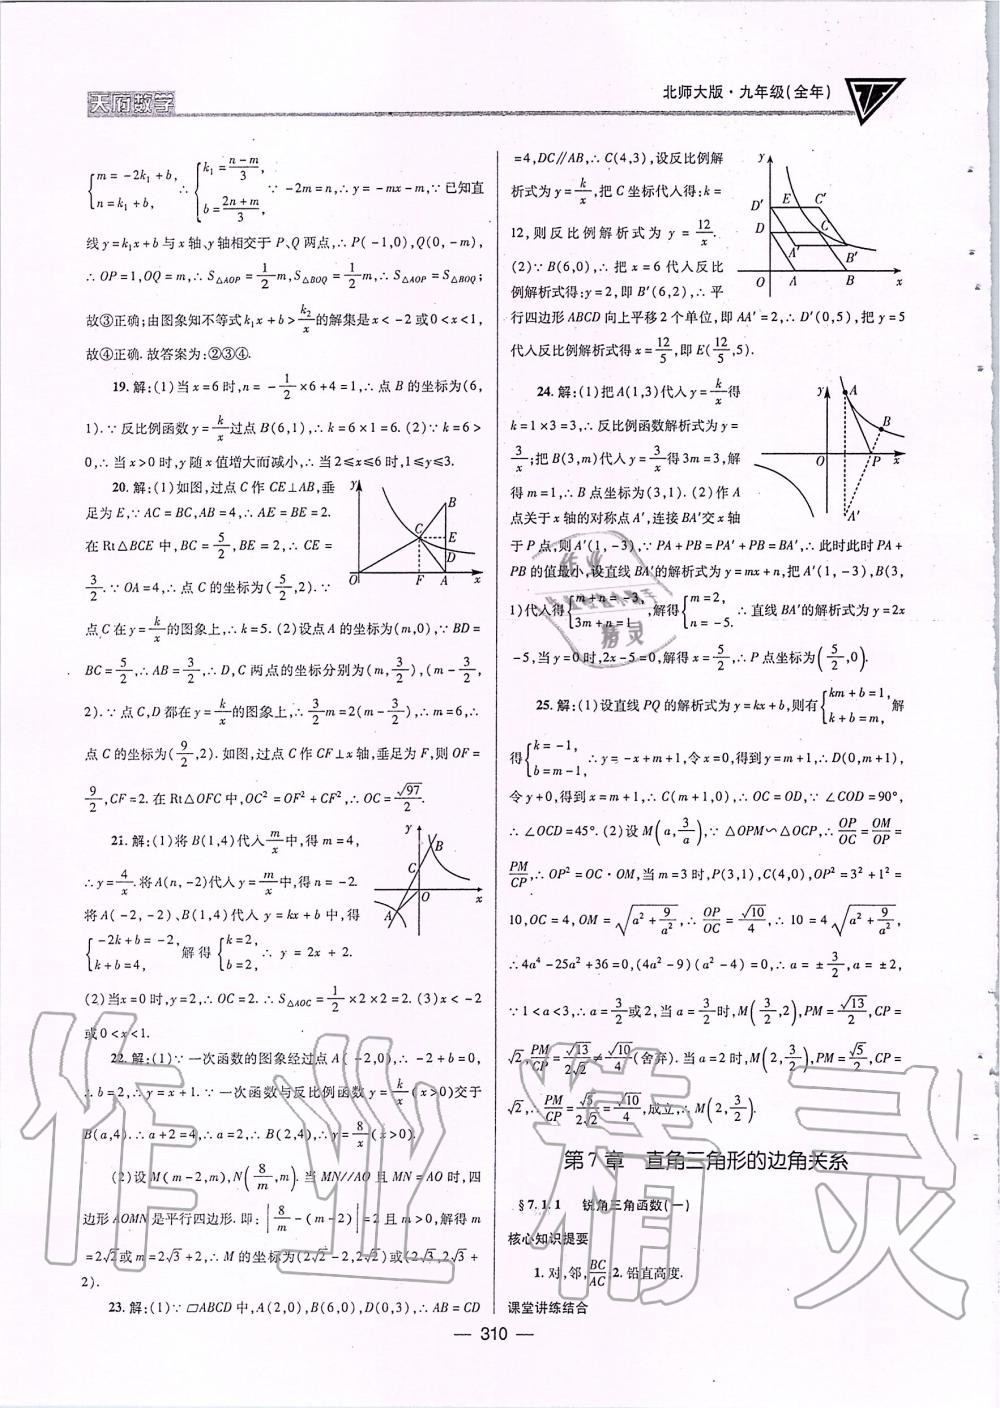 天府数学
北师大版·九年级(全年)
{m=-2k₁+b, n=k₁+b, ∴ {k₁=(n-m)/3, b=(2n+m)/3, ∵ -2m=n,∴y=-mx-m,∵已知直
线y=k₁x+b与x轴、y轴相交于P、Q两点,∴P(-1,0),Q(0,-m),
∴OP=1,OQ=m,∴S△AOP=1/2m,S△BOQ=1/2m,∴S△AOP=S△BOQ;
故③正确;由图象知不等式k₁x+b>k₂/x的解集是x<-2或0<x<1,
故④正确.故答案为:②③④.
19.解:(1)当x=6时,n=-1/2×6+4=1,∴点B的坐标为(6,
1).∵反比例函数y=k/x过点B(6,1),∴k=6×1=6.(2)∵k=6>
0,∴当x>0时,y随x值增大而减小,∴当2≤x≤6时,1≤y≤3.
20.解:(1)如图,过点C作CE⊥AB,垂
足为E,∵AC=BC,AB=4,∴AE=BE=2.
在Rt△BCE中,BC=5/2,BE=2,∴CE=
3/2.∵OA=4,∴点C的坐标为(5/2,2).∵
点C在y=k/x的图象上,∴k=5.(2)设点A的坐标为(m,0),∵BD=
BC=5/2,∴AB=3/2,∴D,C两点的坐标分别为(m,3/2),(m-3/2,
2).∵点C,D都在y=k/x的图象上,∴3/2m=2(m-3/2),∴m=6,∴
点C的坐标为(9/2,2).如图,过点C作CF⊥x轴,垂足为F,则OF=
9/2,CF=2.在Rt△OFC中,OC²=OF²+CF²,∴OC=√97/2.
21.解:(1)将B(1,4)代入m/x中,得m=4,
∴y=4/x.将A(n,-2)代入y=m/x中,得n=-2.
将A(-2,-2)、B(1,4)代入y=kx+b中,得
{-2k+b=-2, k+b=4, 解得{k=2, b=2, ∴y=2x+2.
(2)当x=0时,y=2,∴OC=2.∴S△AOC=1/2×2×2=2.(3)x<-2
或0<x<1.
22.解:(1)∵一次函数的图象经过点A(-2,0),∴-2+b=0,
∴b=2,∴y=x+1.∵一次函数与反比例函数y=k/x(x>0)交于
B(a,4).∴a+2=4,∴a=2,∴B(2,4),∴y=8/x(x>0).
(2)设M(m-2,m),N(8/m,m).当MN//AO且MN=AO时,四
边形AOMN是平行四边形.即:|8/m-(m-2)|=2且m>0,解得m
=2√2或m=2√3+2,∴M的坐标为(2√2-2,2√2)或(2√3,2√3+
2).
23.解:(1)∵▱ABCD中,A(2,0),B(6,0),D(0,3),∴AB=CD
=4,DC//AB,∴C(4,3),设反比例解
析式为y=k/x,把C坐标代入得:k=
12,则反比例解析式为y=12/x.
(2)∵B(6,0),∴把x=6代入反比
例解析式得:y=2,即B′(6,2),∴平
行四边形ABCD向上平移2个单位,即AA′=2,∴D′(0,5),把y=5
代入反比例解析式得x=12/5,即E(12/5,5).
24.解:(1)把A(1,3)代入y=k/x得
k=1×3=3,∴反比例函数解析式为y=
3/x;把B(3,m)代入y=3/x得3m=3,解
得m=1,∴B点坐标为(3,1).(2)作A
点关于x轴的对称点A′,连接BA′交x轴
于P点,则A′(1,-3),∵PA+PB=PA′+PB=BA′,∴此时此时PA+
PB的值最小,设直线BA′的解析式为y=mx+n,把A′(1,-3),B(3,
1)代入得{m+n=-3, 3m+n=1, 解得{m=2, n=-5. ∴直线BA′的解析式为y=2x
-5,当y=0时,2x-5=0,解得x=5/2,∴P点坐标为(5/2,0).
25.解:(1)设直线PQ的解析式为y=kx+b,则有{km+b=1, k+b=m, 解
得{k=-1, b=m-1, ∴y=-x+m+1,令x=0,得到y=m+1,∴D(0,m+1),
令y+0,得到x=m+1,∴C(m+1,0),∴OC=OD,∵∠COD=90°,
∴∠OCD=45°.(2)设M(a,3/a),∵△OPM∽△OCP,∴OP/OC=OM/OP=
PM/CP,∴OP²=OC·OM,当m=3时,P(3,1),C(4,0),OP²=3²+1²=
10,OC=4,OM=√(a²+9/a²),∴OP/OC=√10/4,∴10=4√(a²+9/a²),
∴4a⁴-25a²+36=0,(4a²-9)(a²-4)=0,∴a=±3/2,a=±2,
∵1<a<3,∴a=3/2或2,当a=3/2时,M(3/2,2),PM=√13/2,CP=
√2,PM/CP=√13/2√2≠√10/4(舍弃).当a=2时,M(2,3/2),PM=√5/2,CP=
√2,∴PM/CP=√5/2√2=√10/4,成立,∴M(2,3/2).
第7章 直角三角形的边角关系
§7.1.1 锐角三角函数(一)
核心知识提要
1.对,邻,BC/AC.2.铅直高度.
课堂讲练结合
— 310 —
作业精灵